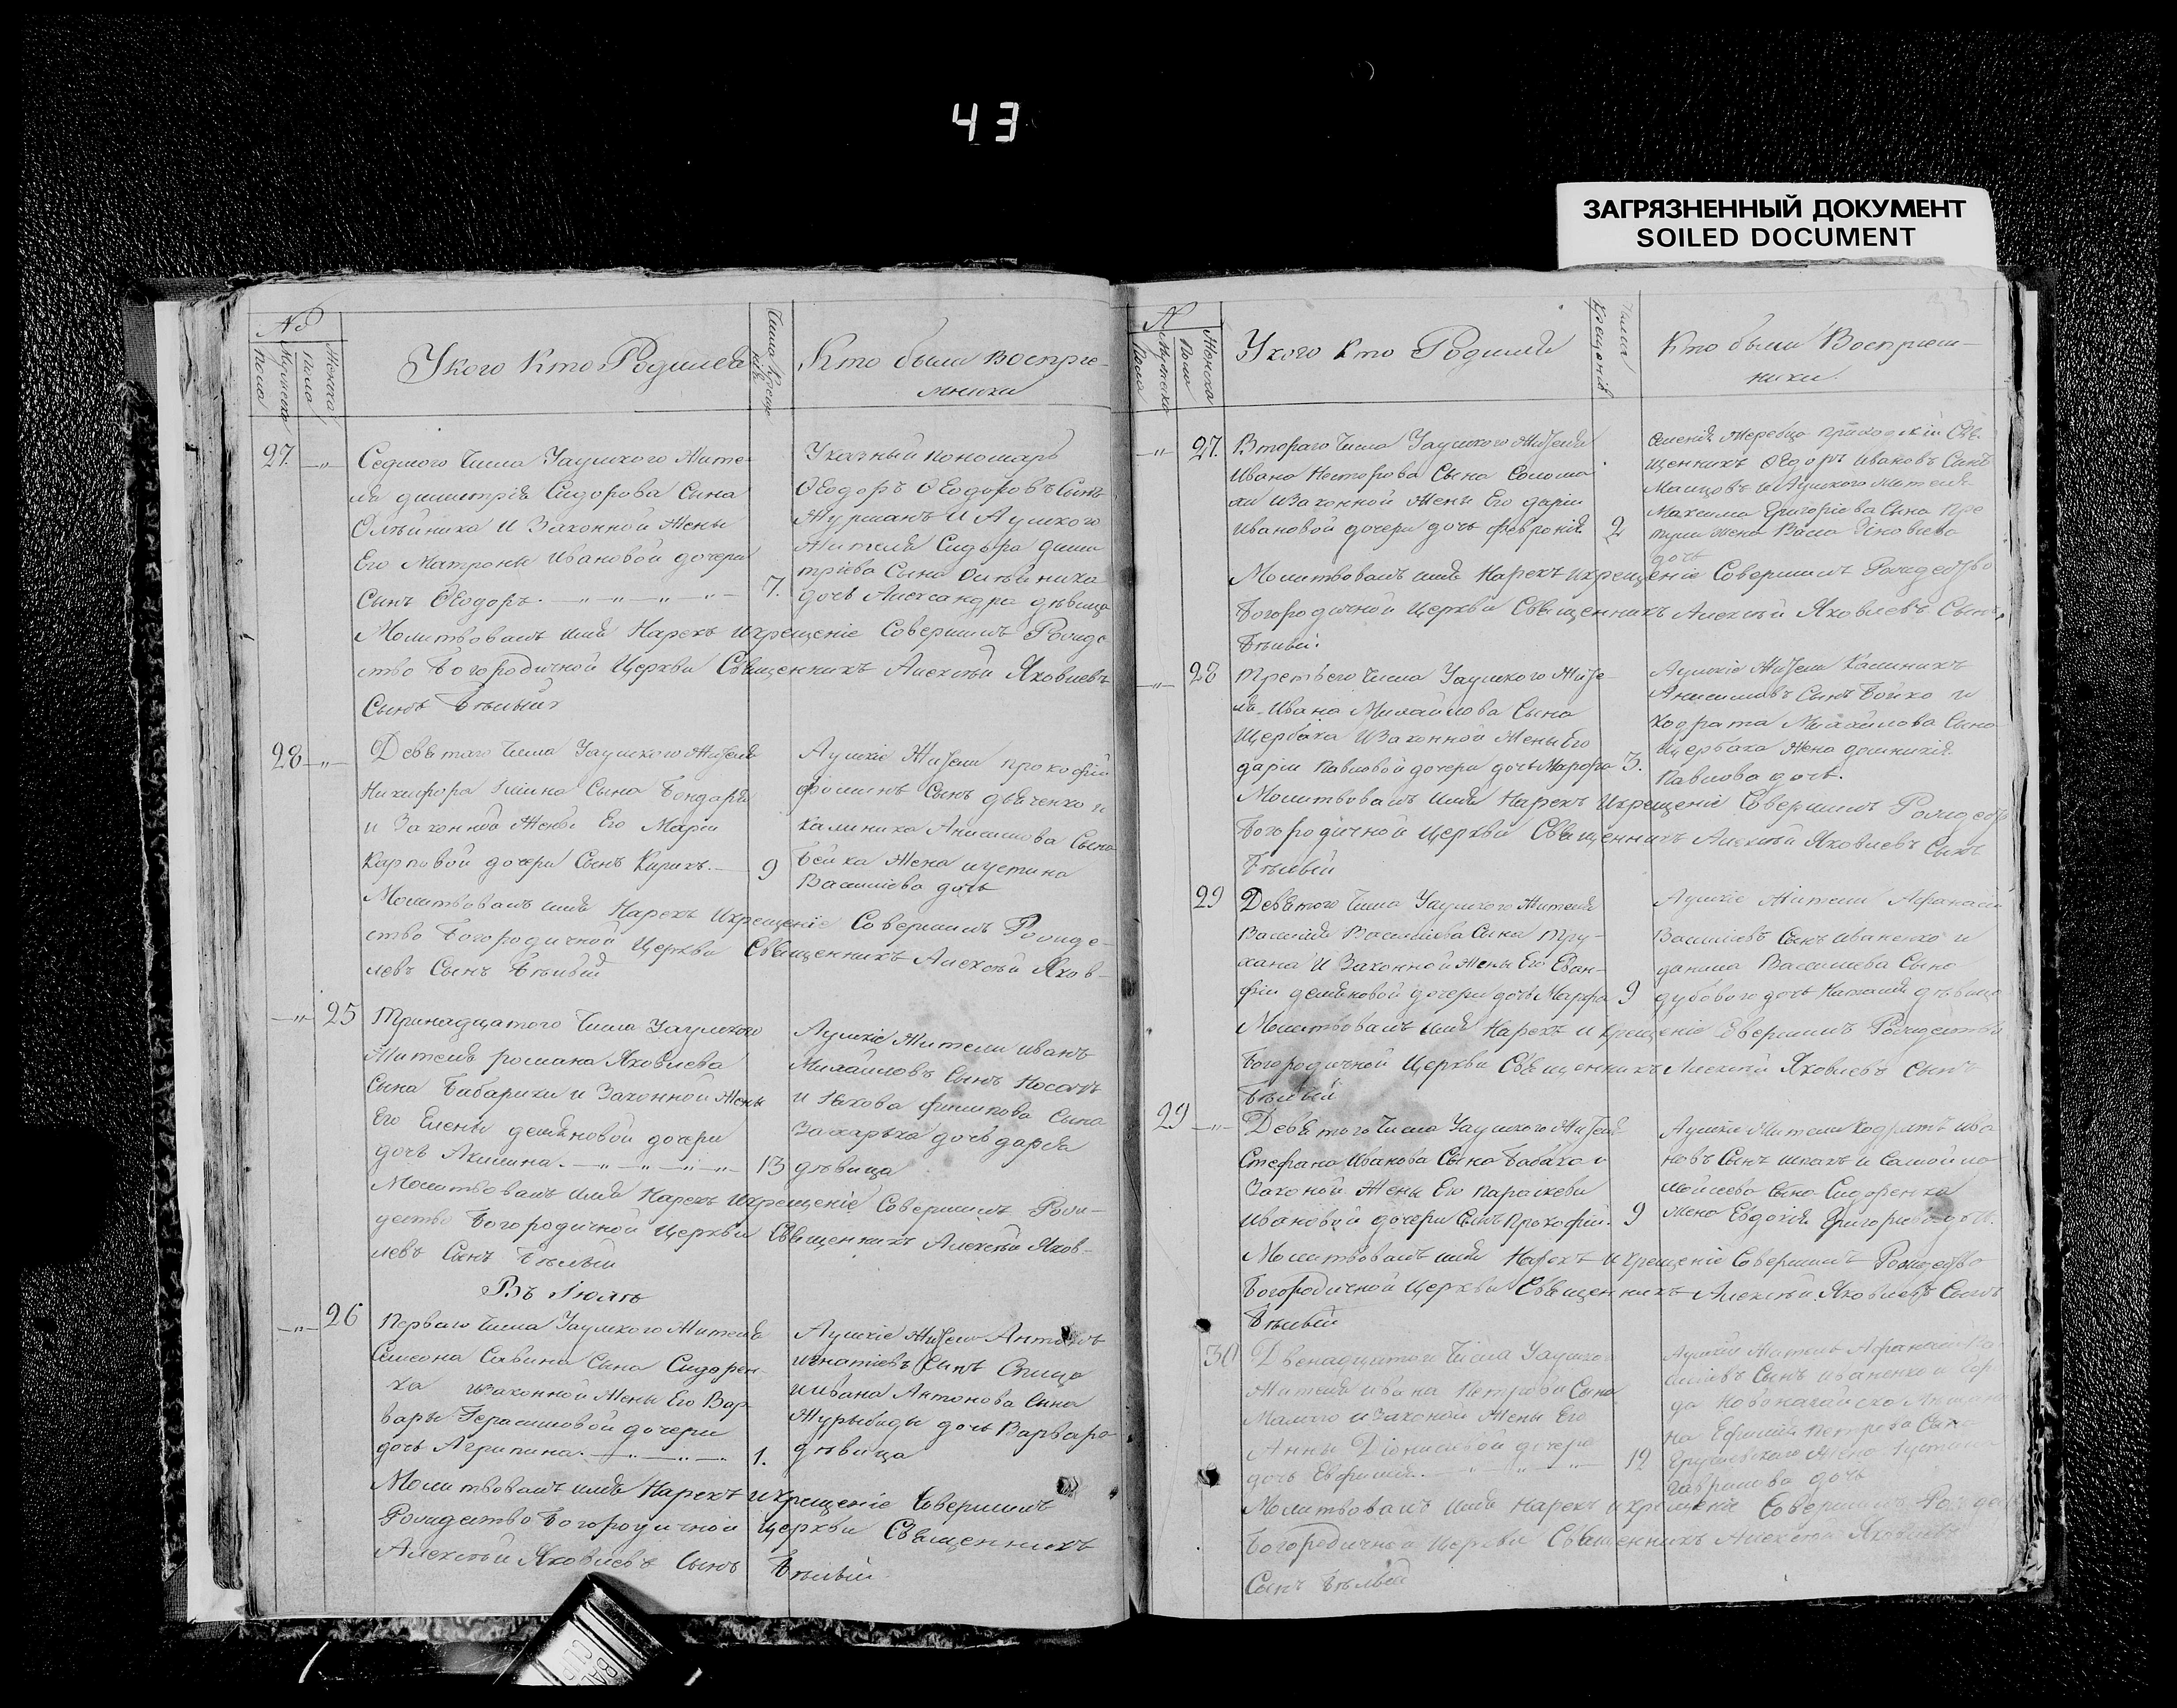 43
ЗАГРЯЗНЕННЫЙ ДОКУМЕНТ
SOILED DOCUMENT
№
Мужеска пола
Женска пола
Укого Кто Родился
Числа Креще нія
Кто были Воспріе-
мники
27. „ Седмого Числа Уаулского Жите-
ля димитрія Сидорова Сына
Олѣйника И Законной Жены
Его Матроны Ивановой дочери
Сынъ Ѳеодоръ. „ „ „ „ 7.
Указный пономарь
Ѳеодоръ Ѳеодоровъ Сынъ
И Аулского
Жителя Сидора дими
тріева Сына Олѣйника
дочь Александра дѣвица
Молитвовалъ имя Нарекъ икрещеніе Совершилъ Рожде
ство Богородичной Церкви Священникъ Алексѣй Яковлевъ
Сынъ Бѣлый
28 „ Девятого Числа Уаулского Жителя
Никифора Сына Бондаря
и Законной Жены Его Маріи
Карповой дочери Сынъ Кирикъ. 9
Аулскіе Жители прокофій
Сынъ дяченко и
калиника Анисимова Сына
Бойка Жена иустина
Василіева дочь
Молитвовалъ имя Нарекъ Икрещеніе Совершилъ Рожде-
ство Богородичной Церкви Священникъ Алексѣй Яков-
левъ Сынъ Бѣлый
„ 25 Тринадцатого Числа Уаулского
Жителя романа Яковлева
Сына Бабарики и Законной Жены
Его Елены демяновой дочери
дочь Акилина. „ „ „ „ 13
Аулскіе Жители иванъ
Михайловъ Сынъ Носачъ
и Якова филипова Сына
Захарька дочь дарія
дѣвица
Молитвовалъ имя Нарекъ Икрещеніе Совершилъ Рож-
дество Богородичной Церкви Священникъ Алексѣй Яков-
левъ Сынъ Бѣлый
Въ Іюлѣ
„ 26 Перваго Числа Уаулского Жителя
Симеона Савина Сына Сидорен-
ка изаконной Жены Его Вар
вары Герасимовой дочери
дочь Агрипина. „ „ 1.
Аулскіе Жители Антонъ
игнатіевъ Сынъ Спица
иивана Антонова Сына
Журыбиды дочь Варвара
дѣвица
Молитвовалъ имя Нарекъ икрещеніе Совершилъ
Рождество Богородичной Церкви Священникъ
Алексѣй Яковлевъ Сынъ Бѣлый
№
Мужеска Пола
Женска Пола
Укого Кто Родился
Числа Крещенія
Кто были Воспріем-
ники.
„ 27. Втораго Числа Уаулского Жителя
Ивана Нестерова Сына Солома
хи иЗаконной Жены Его даріи
Ивановой дочери дочь февронія 2
Жеребца приходскій Свя-
щенникъ Ѳедоръ Ивановъ Сынъ
и Аулского Жителя
Максима Григоріева Сына
Жена Яковлева
дочь
Молитвовалъ имя Нарекъ икрещеніе Совершилъ Рождество
Богородичной Церкви Священникъ Алексѣй Яковлевъ Сынъ
Бѣлый.
„ 28 Третьего Числа Уаулского Жите-
ля Ивана Михайлова Сына
Щербака иЗаконной Жены Его
даріи Павловой дочери дочь Марфа 3.
Аулскіе Жители Калиникъ
Анисимовъ Сынъ Бойко и
кодрата Михайлова Сына
Щербака Жена домникія
Павлова дочь.
Молитвовалъ имя Нарекъ Икрещеніе Совершилъ Рождество
Богородичной Церкви Священникъ Алексѣй Яковлевъ Сынъ
Бѣлый
29 Девятого Числа Уаулского Жителя
Василія Василіева Сына Тру-
хана И Законной Жены Его Еван-
фіи демяновой дочери дочь Марфа 9
Аулскіе Жители Афанасій
Василіевъ Сынъ иваненко и
данила Василіева Сына
дубового дочь Наталия дѣвица
Молитвовалъ имя Нарекъ и крещеніе Совершилъ Рождество
Богородичной Церкви Священникъ Алексѣй Яковлевъ Сынъ
Бѣлый
29 „ Девятого Числа Уаулского Жителя
Стефана Иванова Сына Бабака и
Законой Жены Его параскеви
Ивановой дочери Сынъ прокофій. 9
Аулскіе Жители Кодратъ ива
новъ Сынъ шпакъ и Самойла
мойсеева Сына Сидоренка
Жена Евдокія Григоріева дочь.
Молитвовалъ имя Нарекъ икрещеніе Совершилъ Рождество
Богородичной Церкви Священникъ Алексѣй Яковлевъ Сынъ
Бѣлый
30 Двенадцатого Числа Уаулского
Жителя ивана Петрова Сына
Малого изаконой Жены Его
Анны Діонисіевой дочери
дочь Евфимія. „ „ „ 12
Аулскіе Жители Афанасій Ва
силіевъ Сынъ иваненко и
на Ефимія Петрова Сына
Жена Іустина
Гаврилова дочь
Молитвовалъ имя Нарекъ икрещеніе Совершилъ Рождество
Богородичной Церкви Священникъ Алексѣй Яковлевъ
Сынъ Бѣлый